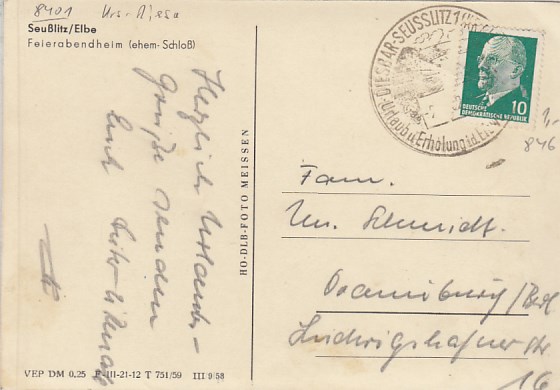 8401 Krs. Riesa
Seußlitz/Elbe
Feierabendheim (ehem. Schloß)
Herzliche Urlaubs-
Grüße senden
Euch
HO-DLB-FOTO MEISSEN
DIESBAR-SEUSSLITZ 1
Urlaub u. Erholung a.d. Elbe
DEUTSCHE
DEMOKRATISCHE REPUBLIK
10
1,-
846
Fam.
Schmidt.
Oranienburg/Bln
Ludwigshafener Str
16
VEP DM 0.25 F-III-21-12 T 751/59 III/9/58